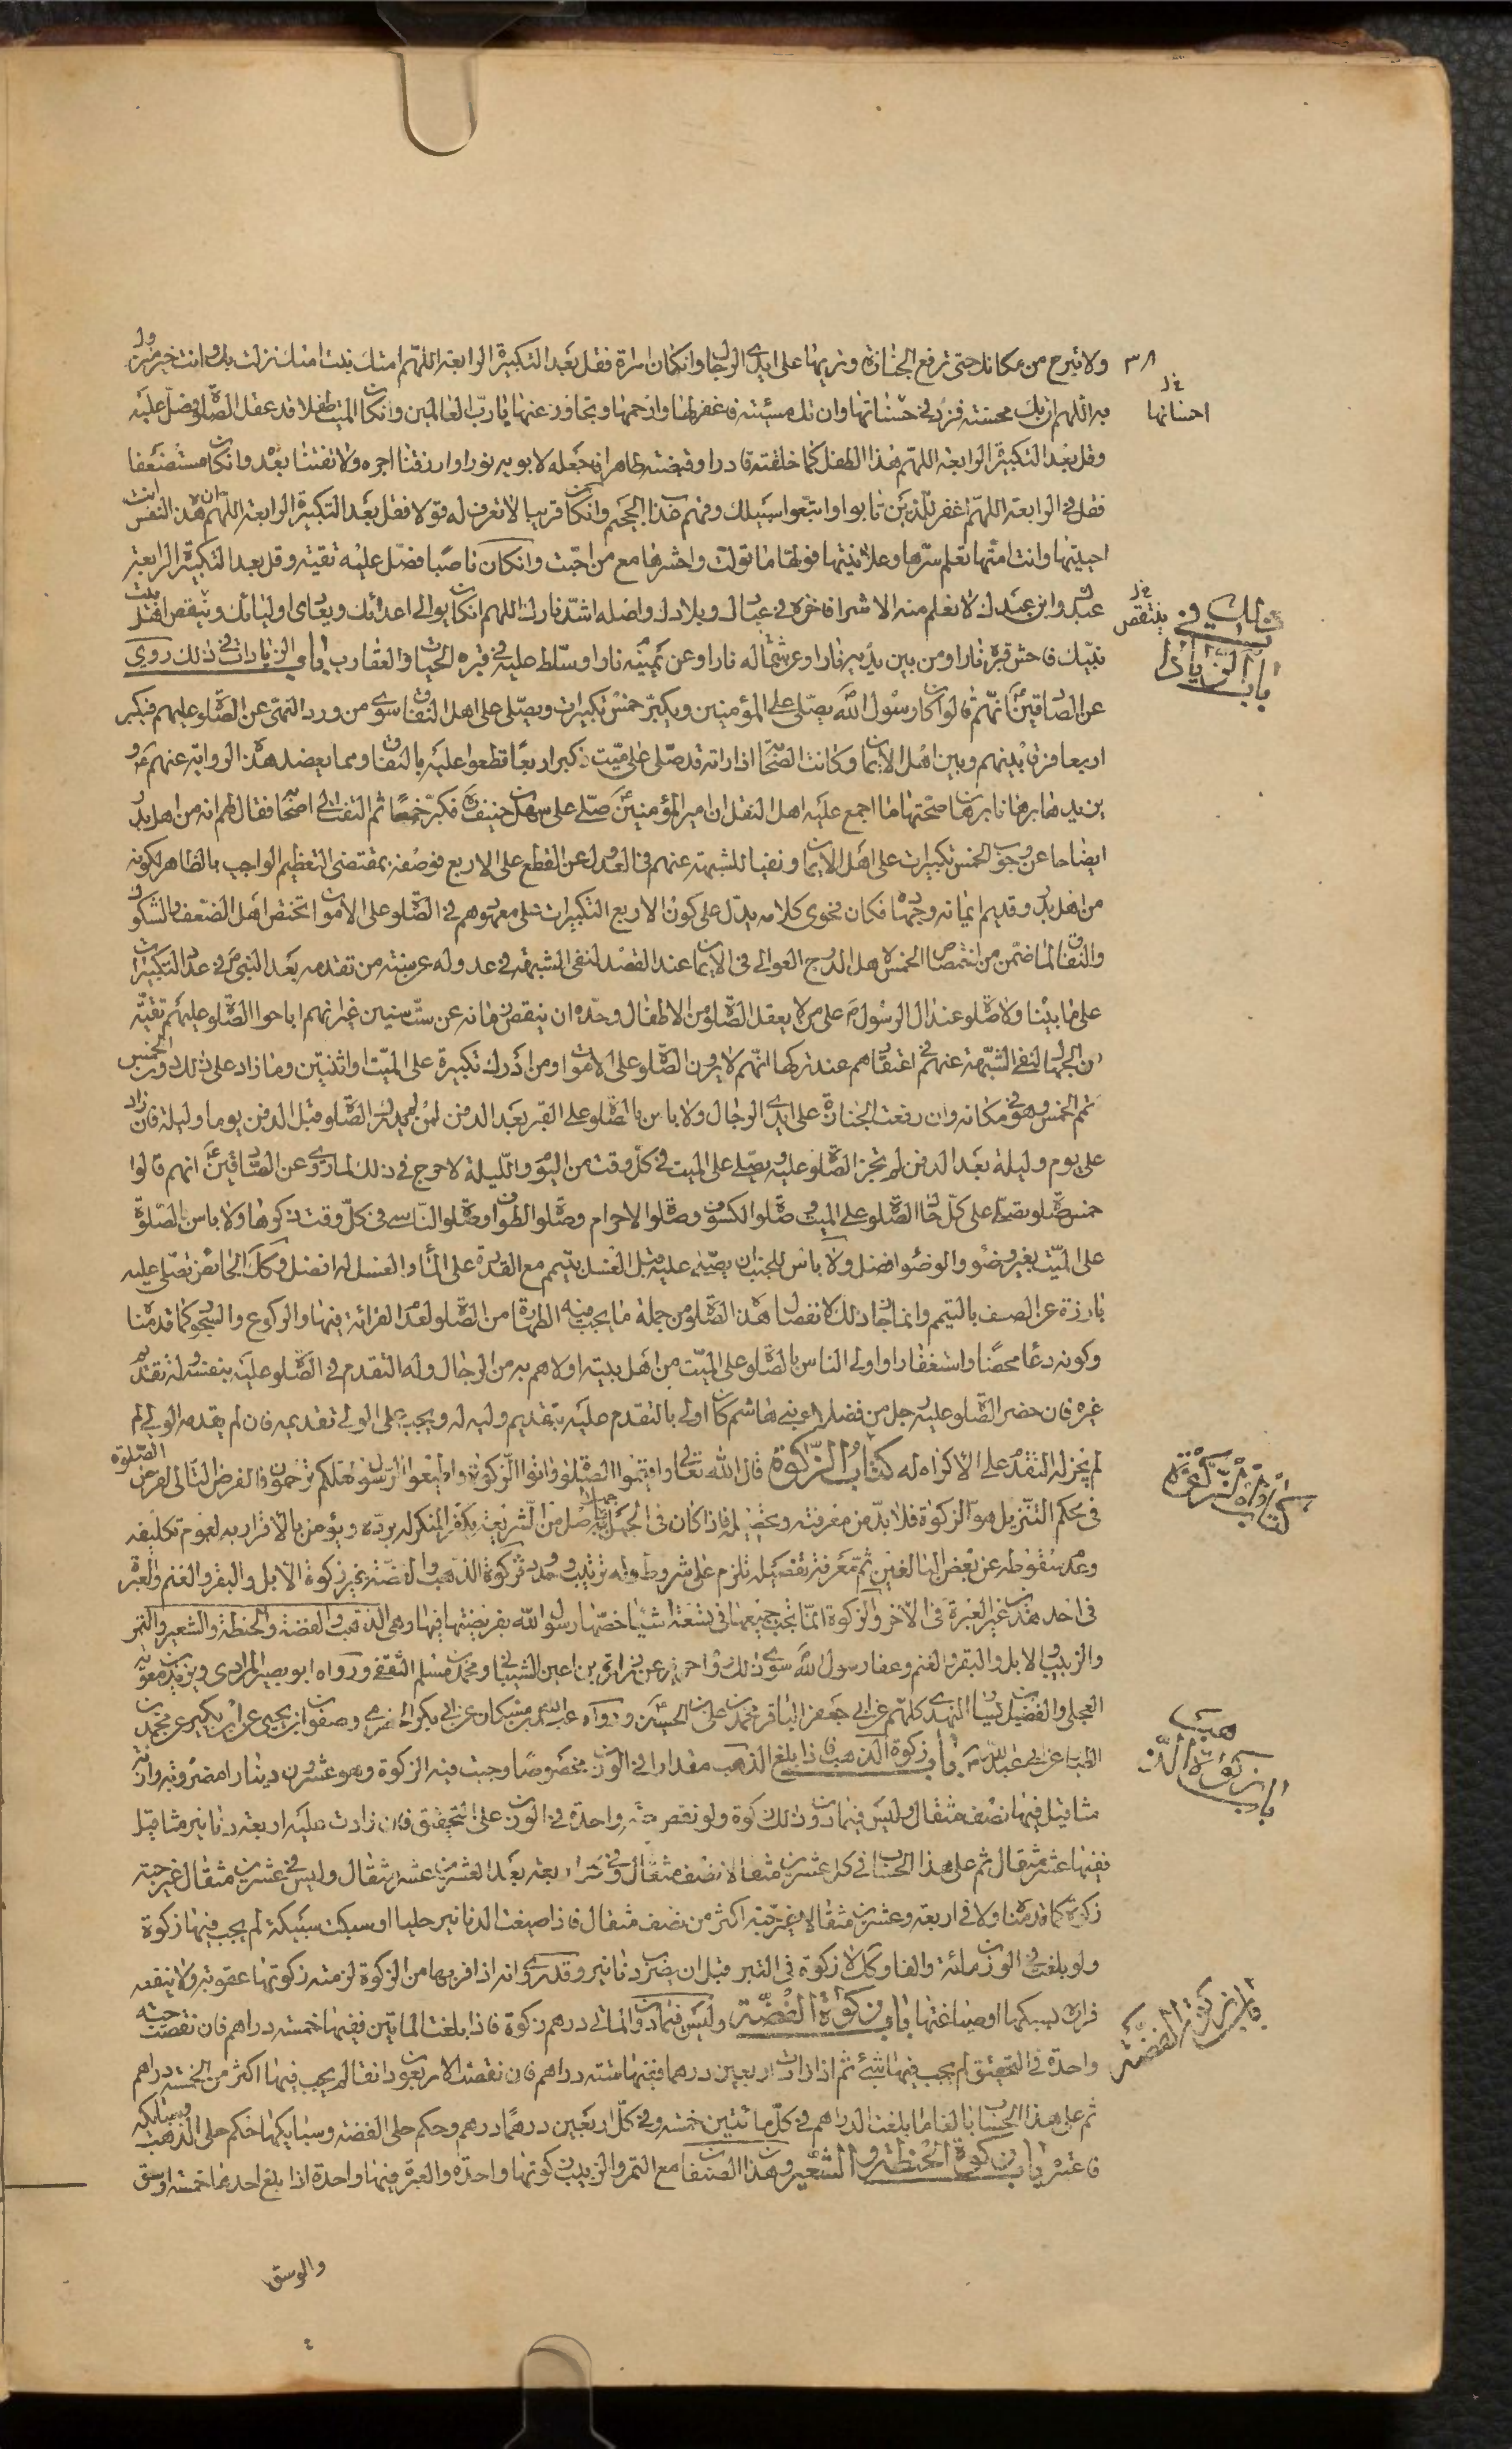 ٣٨
ولا تبرح من مكانك حتى ترفع الجنازة وتريها على ايدي الرجال وان كان امراة فقل بعد التكبيرة الرابعة اللهم امتك بنت امتك نزلت بك وانت خير منزول
به اللهم ان تك محسنة فزد في حسناتها وان تك مسيئة فاغفر لها وارحمها وتجاوز عنها يا رب العالمين وان كان الميت طفلا قد عقل الصلوة فصل عليه
احسانها
وقل بعد التكبيرة الرابعة اللهم هذا الطفل كما خلقته قادرا وقبضته طاهرا فاجعله لابويه نورا وارزقنا اجره ولا تفتنا بعده وان كان مستضعفا
فقل في الرابعة اللهم اغفر للذين تابوا واتبعوا سبيلك وقهم عذاب الجحيم وان كان غريبا لا تعرف له قولا فقل بعد التكبيرة الرابعة اللهم ان هذه النفس انت
احييتها وانت امتها تعلم سرها وعلانيتها فولها ما تولت واحشرها مع من احبت وان كان ناصبا فصل عليه تقية وقل بعد التكبيرة الرابعة
عبدك وابن عبدك لا نعلم منه الا شرا فاخزه في عبادك وبلادك واصله اشد نارك اللهم ان كان يوالي اعدائك ويعادي اوليائك وينتقص اهل بيت
ينتقص
نبيك فاحش قبره نارا ومن بين يديه نارا وعن شماله نارا وعن يمينه نارا وسلط عليه في قبره الحيات والعقارب باب الزيادات في ذلك روي
باب الزيادات في ذلك
عن الصادقين انهم قالوا كان رسول الله يصلي على المؤمنين ويكبر خمس تكبيرات ويصلي على اهل النفاق سوى من ورد النهي عن الصلوة عليهم فيكبر
اربعا فرقا بينهم وبين اهل الايمان وكانت الصحابة اذا راته قد صلى على ميت فكبر اربعا قطعوا عليه بالنفاق ومما يعضد هذه الرواية عنهم
ويزيدها برهانا برهان صحتها ما اجمع عليه اهل النقل ان امير المؤمنين صلى على سهل بن حنيف فكبر خمسا ثم التفت الى اصحابه فقال لهم انه من اهل بدر
ايضاحا عن وجوب الخمس تكبيرات على اهل الايمان ونفيا للشبهة عنهم في العدول عن القطع على الاربع فوصفه بمقتضى التعظيم الواجب بالظاهر لكونه
من اهل بدر وقديم ايمانه وجهاده فكان فحوى كلامه يدل على كون الاربع التكبيرات على معهودهم في الصلوة على الاموات يختص اهل الضعف والشكوك
والنفاق لما ضمن من اختصاص الخمس لاهل الدرج العوالي في الايمان عند القصد لنفي الشبهة في عدوله عن سنة من تقدمه بعد النبي في عدد التكبيرات
على ما بينا ولا صلوة عند ال الرسول على من لا يعقل الصلوة من الاطفال وحده ان ينقص زمانه عن ست سنين غير انهم اباحوا الصلوة عليهم تقية
من الجهال لنفي الشبهة عنهم في اعتقادهم عند تركها انهم لا يرون الصلوة على الاموات ومن ادرك تكبيرة على الميت او اثنتين وما زاد على ذلك دون الخمس
تمم الخمس وهو في مكانه وان رفعت الجنازة على ايدي الرجال ولا باس بالصلوة على القبر بعد الدفن لمن لم يدرك الصلوة قبل الدفن يوما وليلة فان زاد
على يوم وليلة بعد الدفن لم تجز الصلوة عليه ويصلي على الميت في كل وقت من اليوم والليلة لا حرج في ذلك لما روي عن الصادقين انهم قالوا
خمس صلوات تصلى على كل حال الصلوة على الميت وصلوة الكسوف وصلوة الاحرام وصلوة الطواف وصلوة الناسي في كل وقت ذكرها ولا باس بالصلوة
على الميت بغير وضوء والوضوء افضل ولا باس للجنب ان يصلي عليه قبل الغسل بتيمم مع القدرة على الماء والغسل له افضل وكذلك الحائض تصلي عليه
بارزة عن الصف بالتيمم وانما جاز ذلك لانفصال هذه الصلوة من جملة ما يجب فيه الطهارة من الصلوة لعدم القرائة فيها والركوع والسجود كما قدمنا
وكونه دعاء محضا واستغفارا واولى الناس بالصلوة على الميت من اهل بيته اولاهم به من الرجال وله التقدم في الصلوة عليه بنفسه وله تقديم
غيره فان حضر الصلوة عليه رجل من فضلاء بني هاشم كان اولى بالتقدم عليه بتقديم وليه له ويجب على الولي تقديمه فان لم يقدمه الولي لم
لم يجز له التقدم على الاكراه له كتاب الزكوة قال الله تعالى واقيموا الصلوة واتوا الزكوة واطيعوا الرسول لعلكم ترحمون فالفرض التالي لفرض الصلوة
كتاب الزكوة
في محكم التنزيل هو الزكوة فلا بد من معرفته وتحصيله فاذا كان في الجملة من اصل من الشريعة يكفر المنكر له برده ويؤمن بالاقرار به لعموم تكليفه
وعدم سقوطه عن بعض البالغين ثم معرفة تفصيله تلزم على شروط وله ترتيب وحدود فزكوة الذهب والفضة غير زكوة الابل والبقر والغنم والعبرة
في احد هذين غير العبرة في الاخر والزكوة انما تجب جميعها في تسعة اشياء خصها رسول الله بفريضتها فيها وهي الذهب والفضة والحنطة والشعير والتمر
والزبيب والابل والبقر والغنم وعفا رسول الله سوى ذلك رواه حريز عن زرارة بن اعين الشيباني ومحمد بن مسلم الثقفي ورواه ابو بصير المرادي وبريد بن معوية
العجلي والفضيل بن يسار النهدي كلهم عن ابي جعفر الباقر محمد بن علي بن الحسين ورواه عبد الله بن مسكان عن ابي بكر الحضرمي وصفوان بن يحيى عن ابن بكير عن محمد بن
الطيار عن ابي عبد الله باب زكوة الذهب فاذا بلغ الذهب مقدارا في الوزن مخصوصا وجبت فيه الزكوة وهو عشرون دينارا مضروبة وازنة
باب زكوة الذهب
مثاقيل فيها نصف مثقال وليس فيما دون ذلك زكوة ولو نقص حبة واحدة في الوزن على التحقيق فان زادت عليه اربعة دنانير مثاقيل
ففيها عشر مثقال ثم على هذا الحساب في كل عشرين مثقالا نصف مثقال وفي كل اربعة بعد العشرين عشر مثقال وليس في عشرين مثقال غير حبة
زكوة كما قدمنا ولا في اربعة وعشرين مثقالا غير حبة اكثر من نصف مثقال فاذا صيغت الدنانير حليا او سبكت سبيكة لم يجب فيها زكوة
ولو بلغت في الوزن مائة والفا وكذلك لا زكوة في التبر قبل ان يضرب دنانير وقد روي انه اذا فر بها من الزكوة لزمته زكوتها عقوبة ولا ينفعه
فراره بسبكها او صياغتها باب زكوة الفضة وليس فيما دون المائتي درهم زكوة فاذا بلغت المائتين ففيها خمسة دراهم فان نقصت حبة
باب زكوة الفضة
واحدة في التحقيق لم يجب فيها شيء ثم اذا زادت اربعين درهما ففيها ستة دراهم فان نقصت الاربعون دانقا لم يجب فيها اكثر من الخمسة دراهم
ثم على هذا الحساب بالغا ما بلغت الدراهم في كل مائتين خمسة وفي كل اربعين درهما درهم وحكم حلي الفضة وسبايكها حكم حلي الذهب وسبايكه
فاعتبره باب زكوة الحنطة والشعير وهذان الصنفان مع التمر والزبيب زكوتها واحدة والعبرة فيها واحدة اذا بلغ احدها خمسة اوسق
والوسق